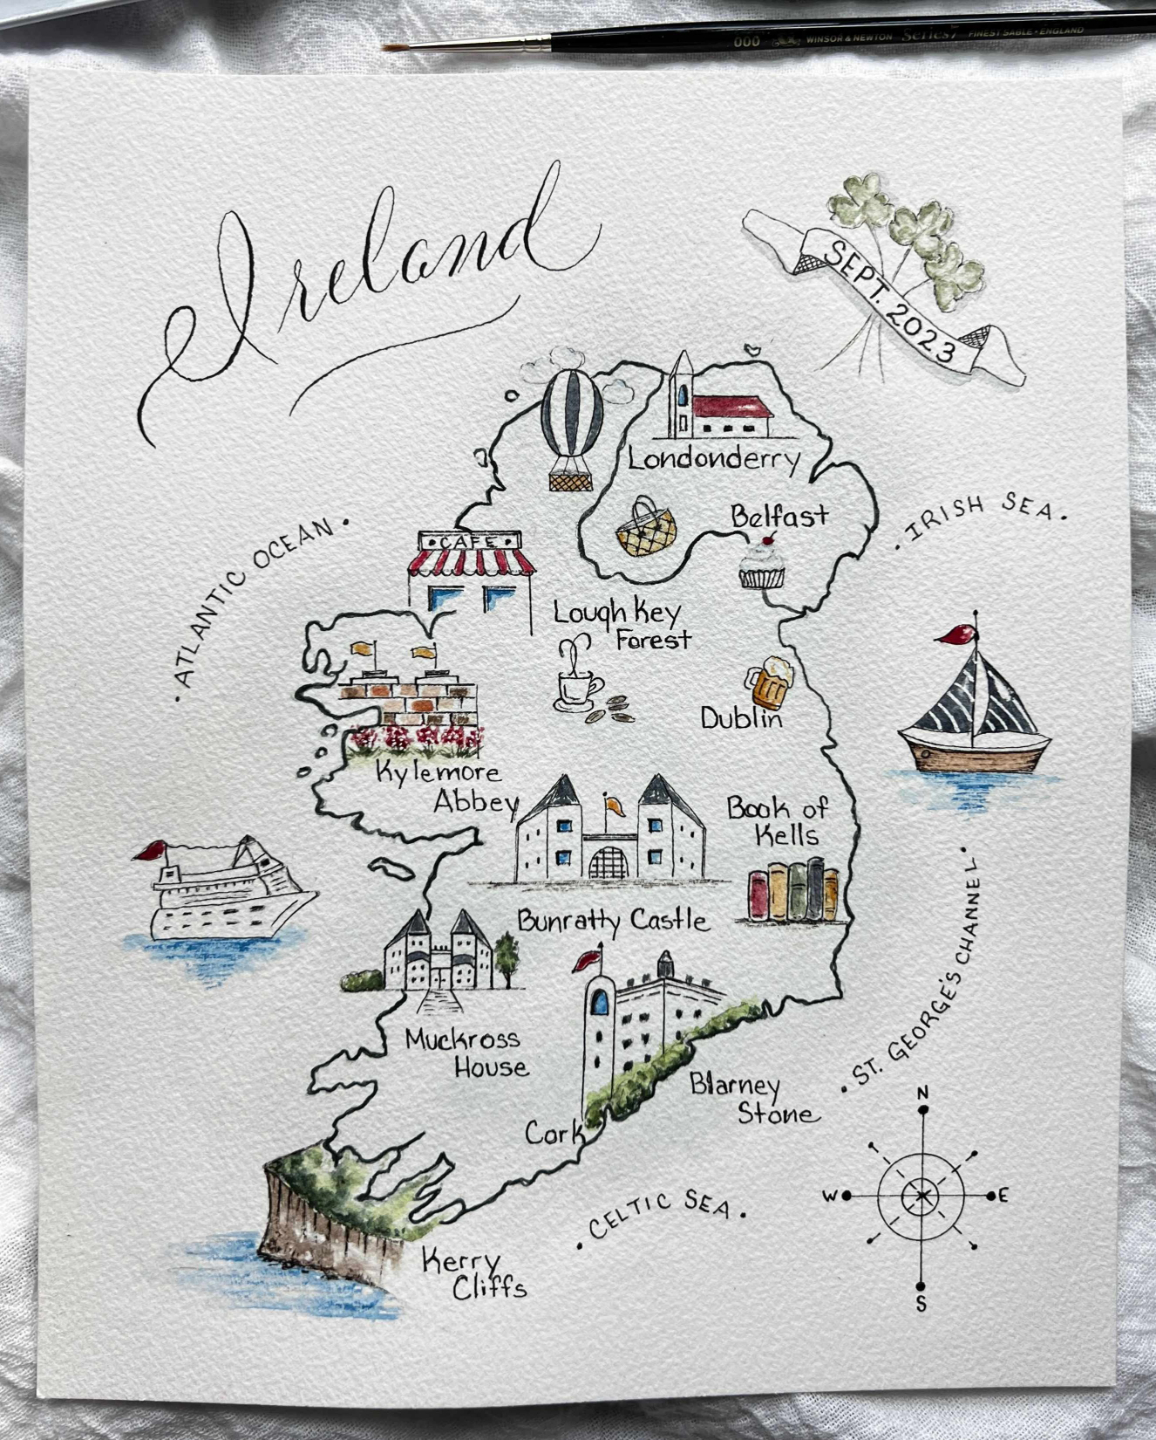 000 WINSOR & NEWTON Series 7 FINEST SABLE • ENGLAND
Ireland
SEPT. 2023
Londonderry
Belfast
• IRISH SEA •
• ATLANTIC OCEAN •
• CAFE •
Lough Key
Forest
Dublin
Kylemore
Abbey
Book of
Kells
Bunratty Castle
Muckross
House
Blarney
Stone
Cork
• ST. GEORGE'S CHANNEL •
• CELTIC SEA •
Kerry
Cliffs
N
W
E
S